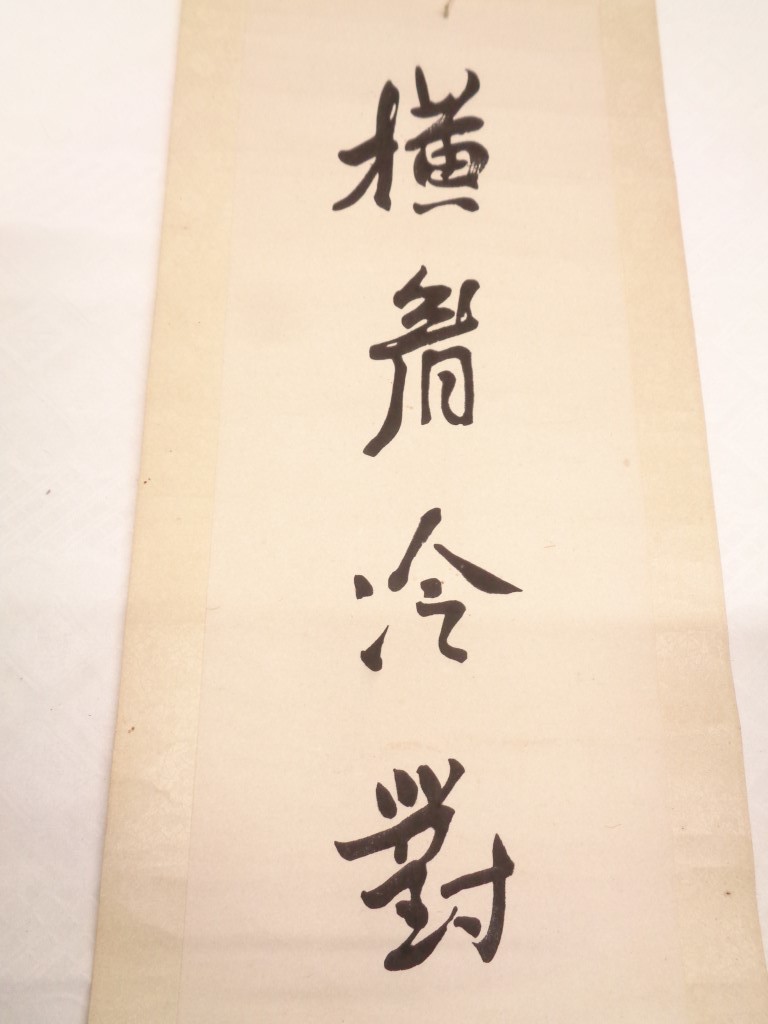 橫眉冷對